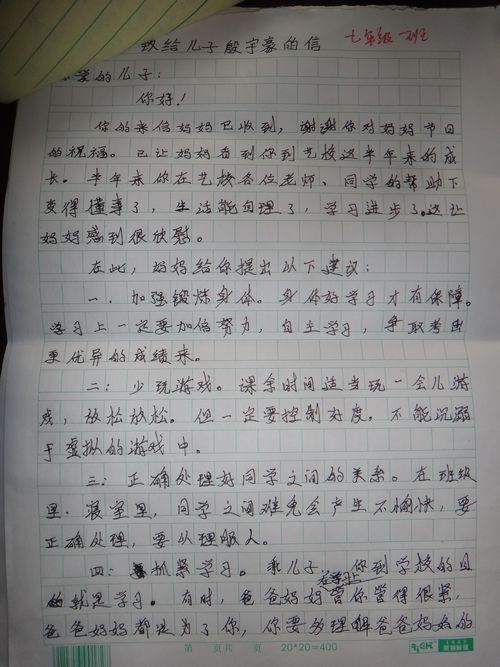 致给儿子殷宇豪的信
七年级一班
亲爱的儿子：
你好！
你的来信妈妈已收到，谢谢你对妈妈节日
的祝福。已让妈妈看到你到艺校这半年来的成
长。半年来你在艺校各位老师、同学的帮助下
变得懂事了，生活能自理了，学习进步了。这让
妈妈感到很欣慰。
在此，妈妈给你提出以下建议：
一．加强锻炼身体。身体好学习才有保障。
学习上一定要加倍努力，自主学习，争取考出
更优异的成绩来。
二：少玩游戏。课余时间适当玩一会儿游
戏，放松放松。但一定要控制好度，不能沉溺
于虚拟的游戏中。
三：正确处理好同学之间的关系。在班级
里．寝室里，同学之间难免会产生不愉快，要
正确处理，要以理服人。
四：抓紧学习。乖儿子，你到学校的目
的就是学习。有时，爸爸妈妈在学习上管你管得很紧，
爸爸妈妈都是为了你，你要多理解爸爸妈妈的
第 页共 页 20*20=400